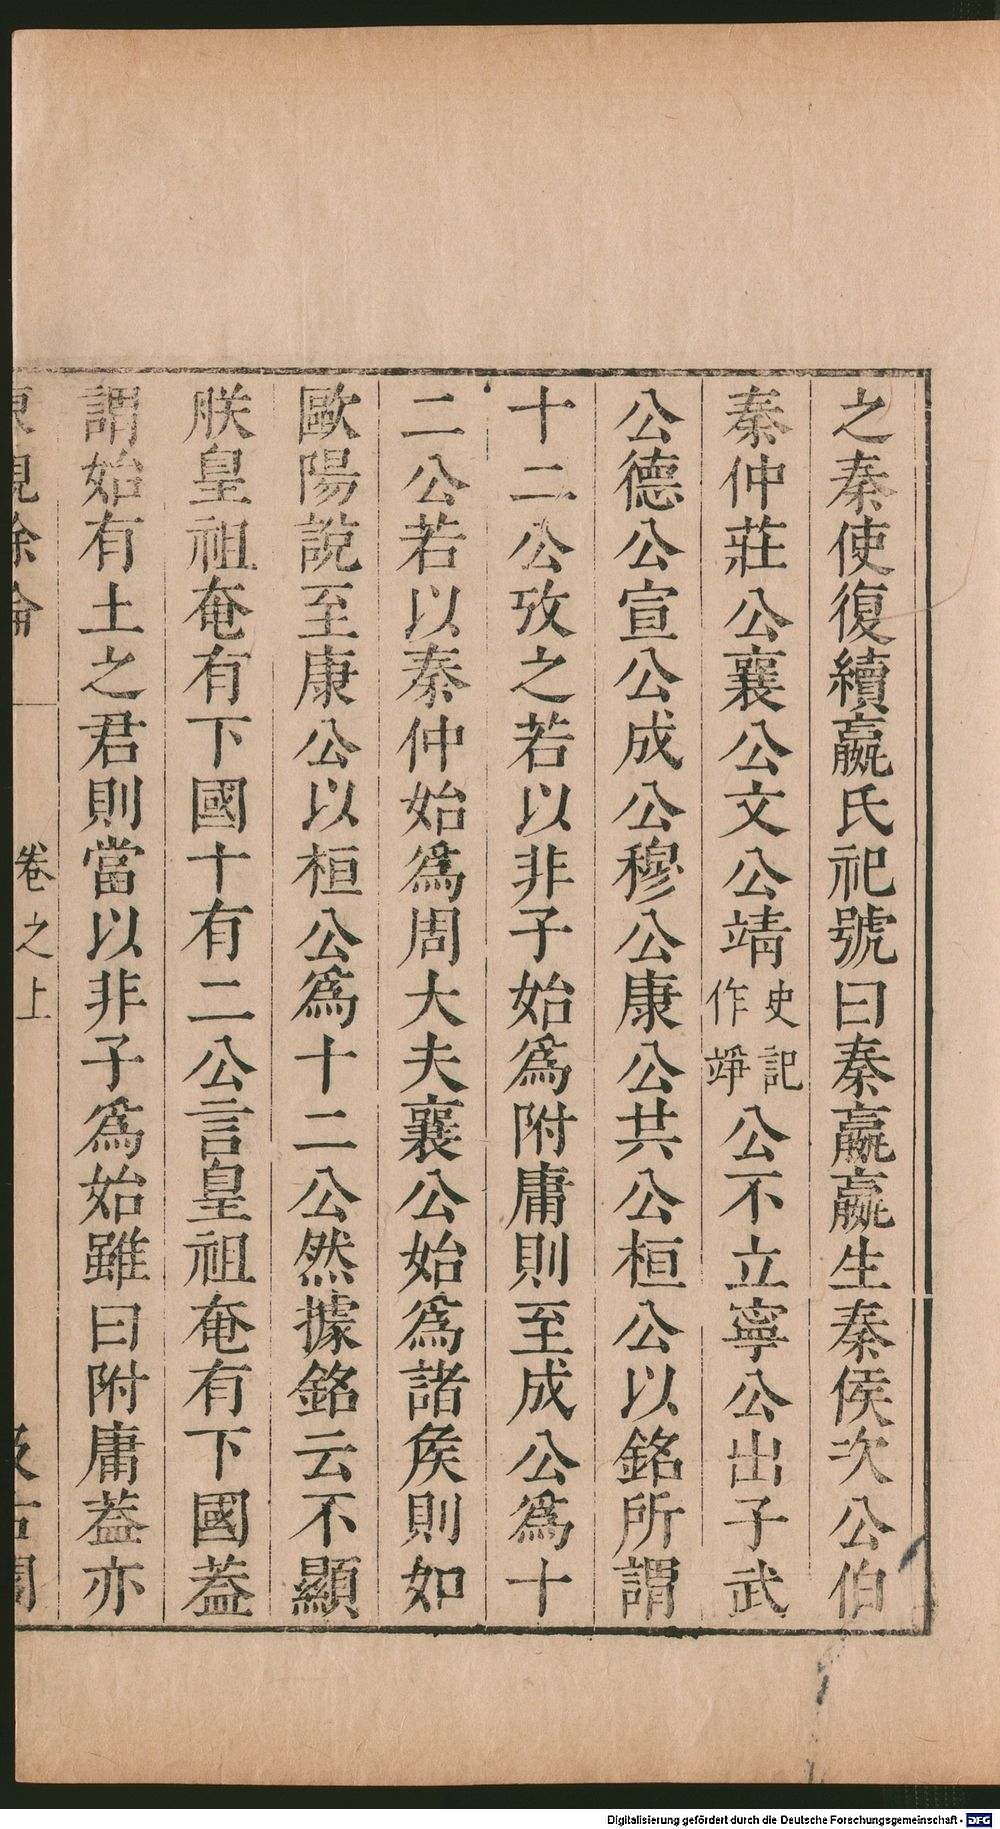 之秦使復續嬴氏祀號曰秦嬴嬴生秦侯次公伯
秦仲莊公襄公文公靖史記作竫公不立寧公出子武
公德公宣公成公穆公康公共公桓公以銘所謂
十二公攷之若以非子始爲附庸則至成公爲十
二公若以秦仲始爲周大夫襄公始爲諸矦則如
歐陽說至康公以桓公爲十二公然據銘云不顯
朕皇祖奄有下國十有二公言皇祖奄有下國蓋
謂始有土之君則當以非子爲始雖曰附庸蓋亦
東觀餘論
卷之上
汲古閣
Digitalisierung gefördert durch die Deutsche Forschungsgemeinschaft - DFG